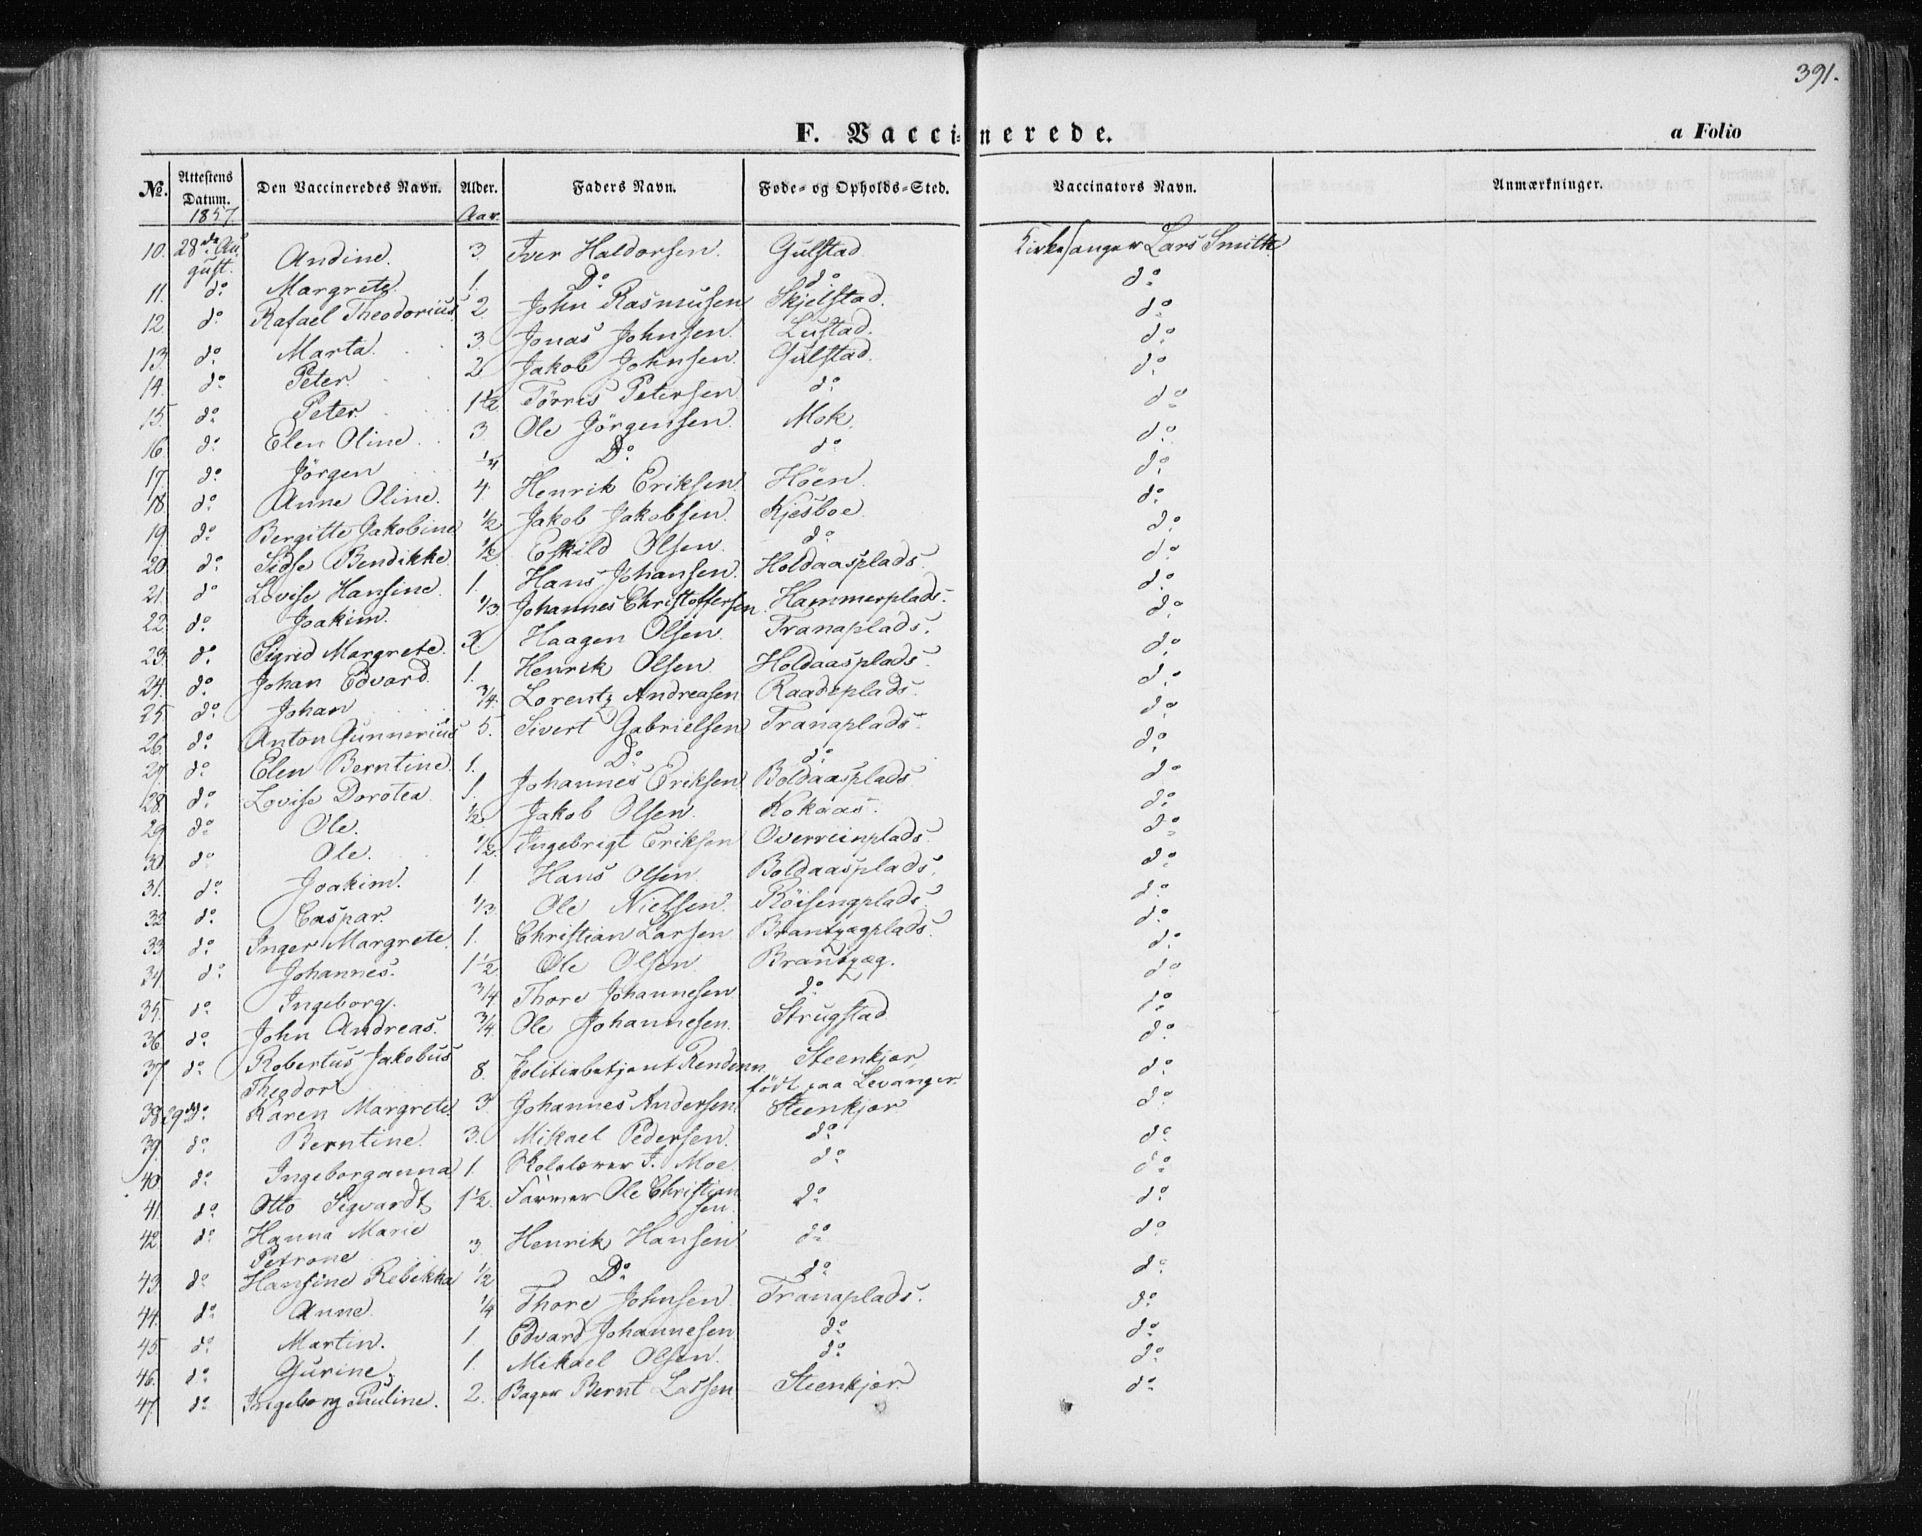 391.
F. Vaccinerede.
a Folio
No. Attestens Datum. Den Vaccineredes Navn. Alder. Faders Navn. Føde- og Opholds-Sted. Vaccinators Navn. Anmærkninger.
1857. Aar.
10. 28de Au- Andine. 3. Iver Haldorsen. Gulstad Kirkesanger Lars Smith
gust.
11. do Margrete 1. Do do do
12. do Rafael Theodorius. 2 John Rasmusen Skjelstad. do
13. do Marta. 3 Jonas Johnsen. Lustad. do
14. do Peter. 2 Jakob Johnsen Gulstad. do
15. do Peter 1 1/2 Törris Petersen do do
16. do Elen Oline 3. Ole Jörgensen. Mok. do
17. do Jörgen 1/4 Do do do
18. do Anne Oline. 4. Henrik Eriksen Höen. do
19. do Bergitte Jakobine 1/2 Jakob Jakobsen. Kjesboe. do
20. do Sidse Bendikke 1/2 Eskild Olsen do do
21. do Lovise Hansine. 1. Hans Johansen. Holdaasplads. do
22. do Joakim. 1/3 Johannes Christoffersen Hammerplads. do
23. do Sigrid Margrete. Haagen Olsen Tranaplads. do
24. do Johan Edvard. 1. Henrik Olsen Holdaasplads. do
25. do Johan 3/4 Lorentz Andreasen Raadeplads. do
26. do Anton Gunnerius 5. Sivert Gabrielsen Tranaplads. do
27. do Elen Berntine. 1. Do do do
28. do Lovise Dorotea. 1. Johannes Eriksen Boldaasplads do
29. do Ole. 1/2 Jakob Olsen. Kokaas. do
30. do Ole. 1/2. Ingebrigt Eriksen Overreinplads. do
31. do Joakim. 1. Hans Olsen. Boldaasplads. do
32. do Caspar. 1/3 Ole Nielsen. Röisengplads. do
33. do Inger Margrete. 1. Christian Larsen Brandzægplads. do
34. do Johannes. 1 1/2 Ole Olsen Brandzæg. do
35. do Ingeborg. 3/4 Thore Johannesen do do
36. do John Andreas. 3/4 Ole Johannesen. Strugstad do
37. do Robertus Jakobus 8. Politiebetjent Steenkjær, do
Theodor født paa Levanger.
38. 29de Karen Margrete 3. Johannes Andersen. Steenkjær do
39. do Berntine. 3. Mikael Pedersen. do do
40. do Ingeborganna 1. Skolelærer J. Moe. do do
41. do Otto Sigvardt 1 1/2. Farver Ole Christian do do
sen.
42. do Hanna Marie 3. Henrik Hansen do do
Petrone
43. do Hansine Rebekka 1/2 Do do do
44. do Anne 1/4 Thore Johnsen Tranaplads. do
45. do Martin. 1. Edvard Johannesen do do
46. do Gurine 1. Mikael Olsen. do do
47. do Ingeborg Pauline. 2. Bager Bernt Larsen Steenkjær. do